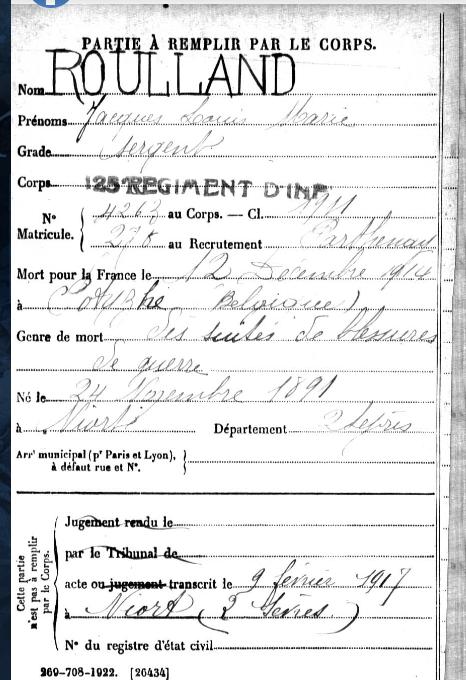 PARTIE À REMPLIR PAR LE CORPS.
Nom ROULLAND
Prénoms Jacques Louis Marie
Grade Sergent
Corps 125 REGIMENT D'INF
N° Matricule. { 4263 au Corps. — Cl. 1911
278 au Recrutement Parthenay
Mort pour la France le 12 Décembre 1914
à (Belgique)
Genre de mort des suites de blessures
de guerre
Né le 24 Novembre 1891
à Niort Département 2 Sèvres
Arr^t municipal (p^r Paris et Lyon), à défaut rue et N°. }
Cette partie n'est pas à remplir par le Corps.
Jugement rendu le
par le Tribunal de
acte ou jugement transcrit le 9 février 1917
à Niort (2 Sèvres)
N° du registre d'état civil
269-708-1922. [26434]